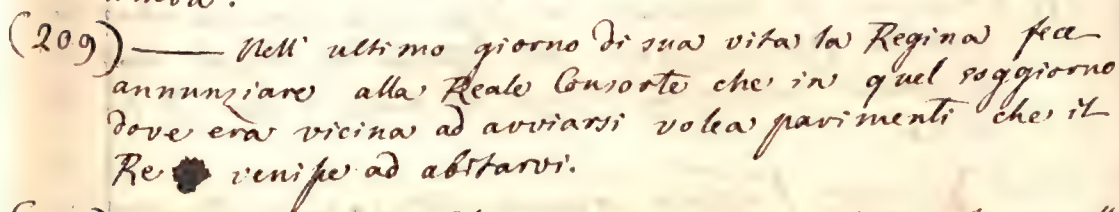 (209) —— Nell' ultimo giorno di sua vita la Regina fece
annunziare alla Reale Consorte che in quel soggiorno
dove era vicina ad avviarsi volea parimenti che il
Re venisse ad abitarvi.